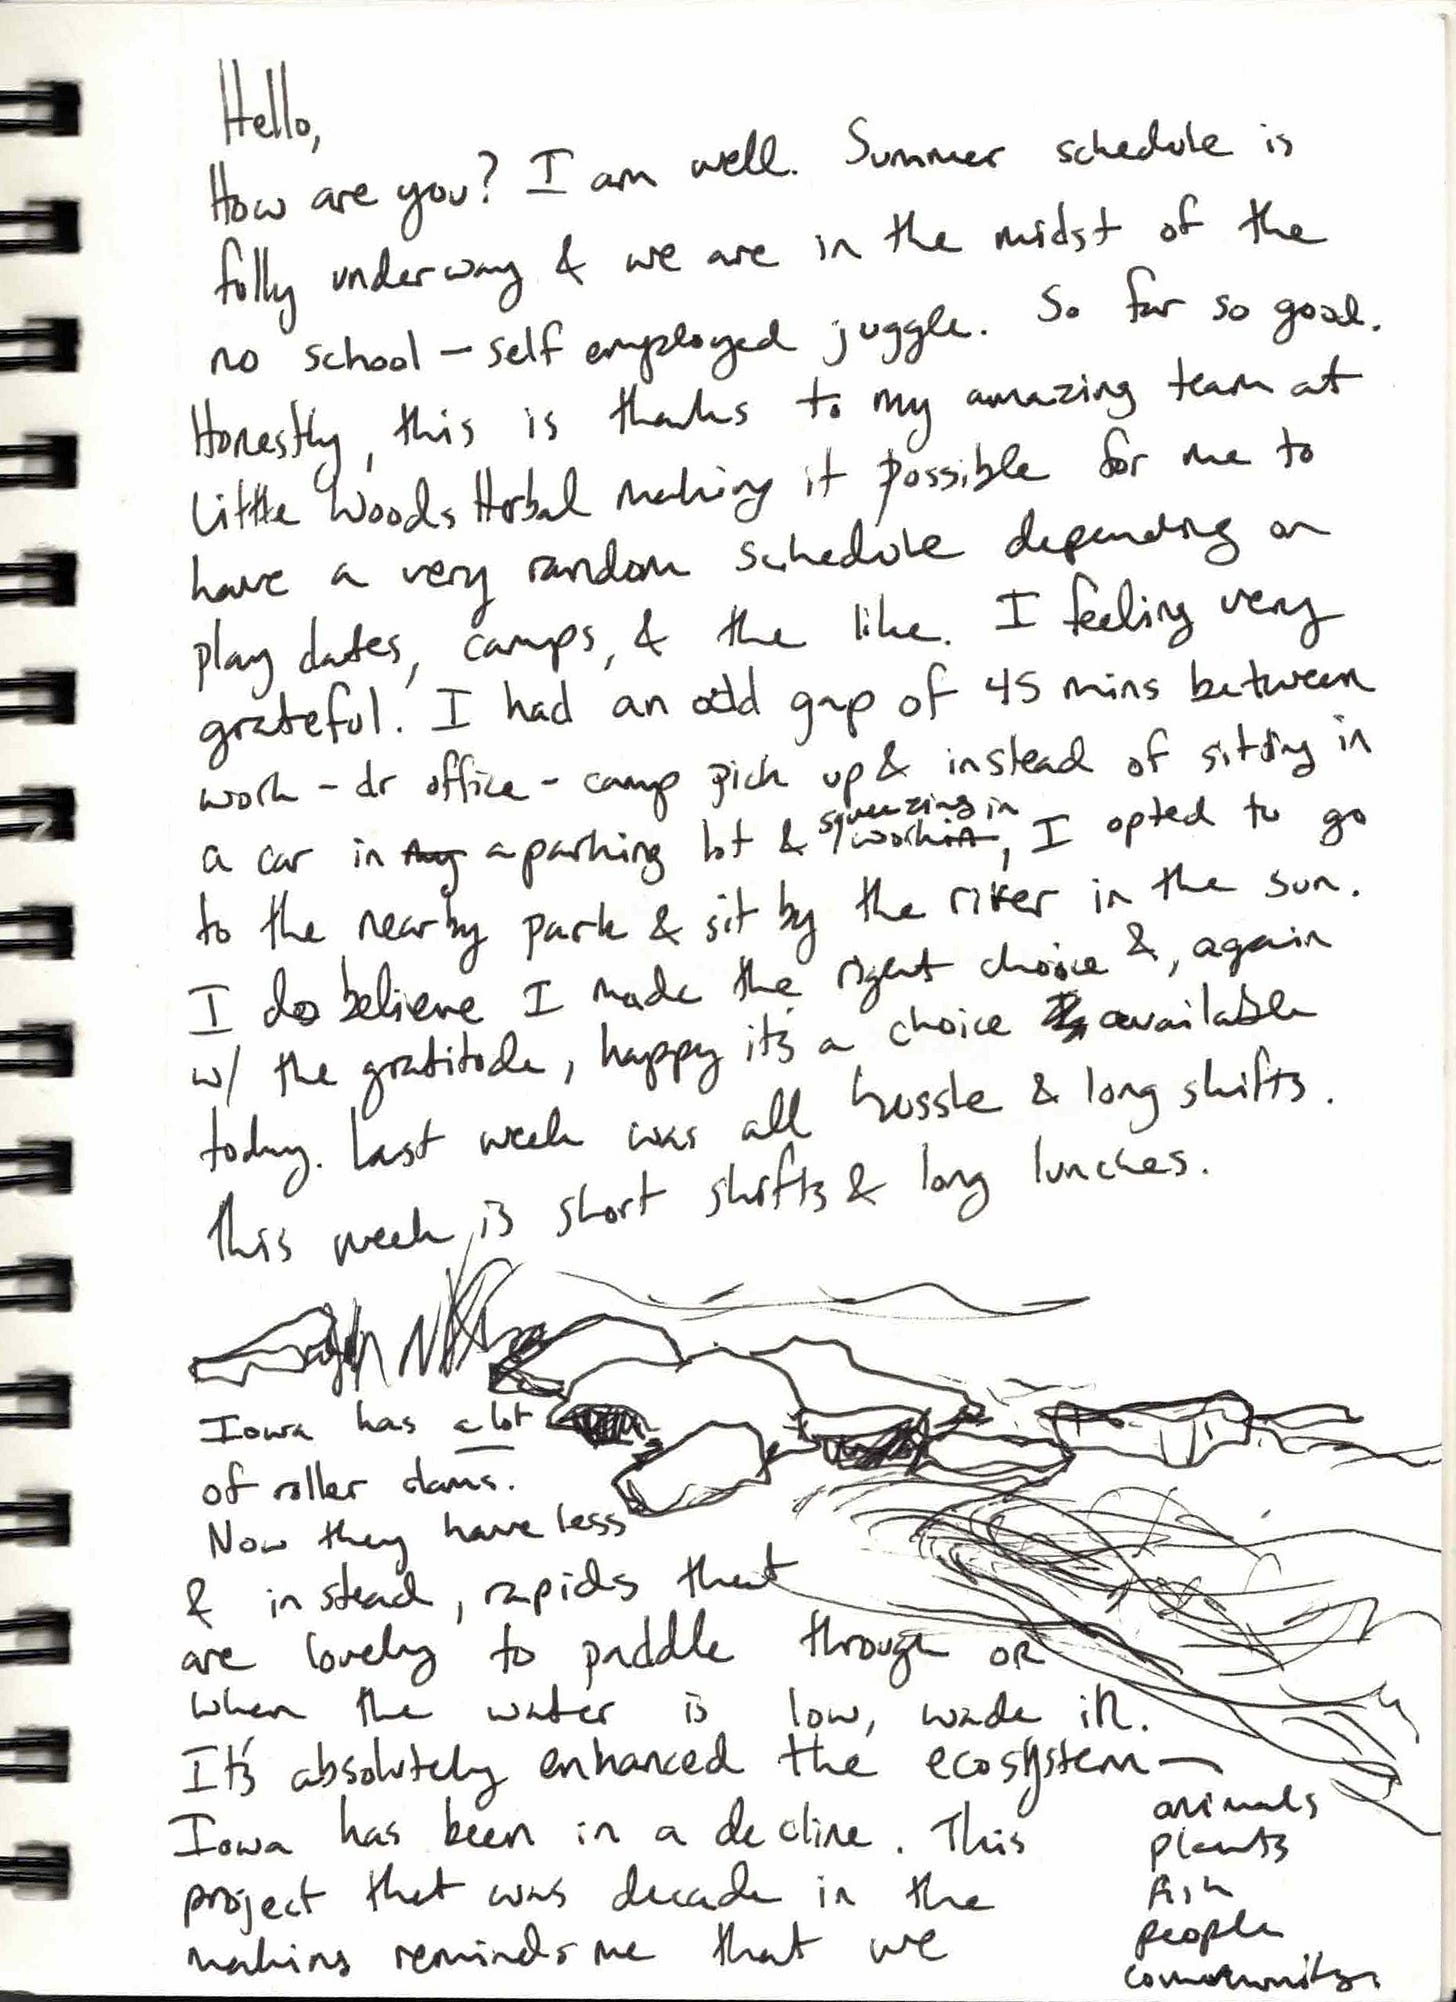 Hello,
How are you? I am well. Summer schedule is
fully underway & we are in the midst of the
no school — self employed juggle. So far so good.
Honestly, this is thanks to my amazing team at
Little Woods Herbal making it possible for me to
have a very random schedule depending on
play dates, camps, & the like. I feeling very
grateful. I had an odd gap of 45 mins between
work - dr office - camp pick up & instead of sitting in
a car in a parking lot & squeezing in
work, I opted to go
to the nearby park & sit by the river in the sun.
I do believe I made the right choice &, again
w/ the gratitude, happy it's a choice available
today. Last week was all hussle & long shifts.
This week is short shifts & long lunches.
Iowa has a lot
of roller dams.
Now they have less
& instead, rapids that
are lovely to paddle through OR
when the water is low, wade in.
It's absolutely enhanced the ecosystem —
animals
plants
fish
people
community
Iowa has been in a decline. This
project that was decade in the
making reminds me that we